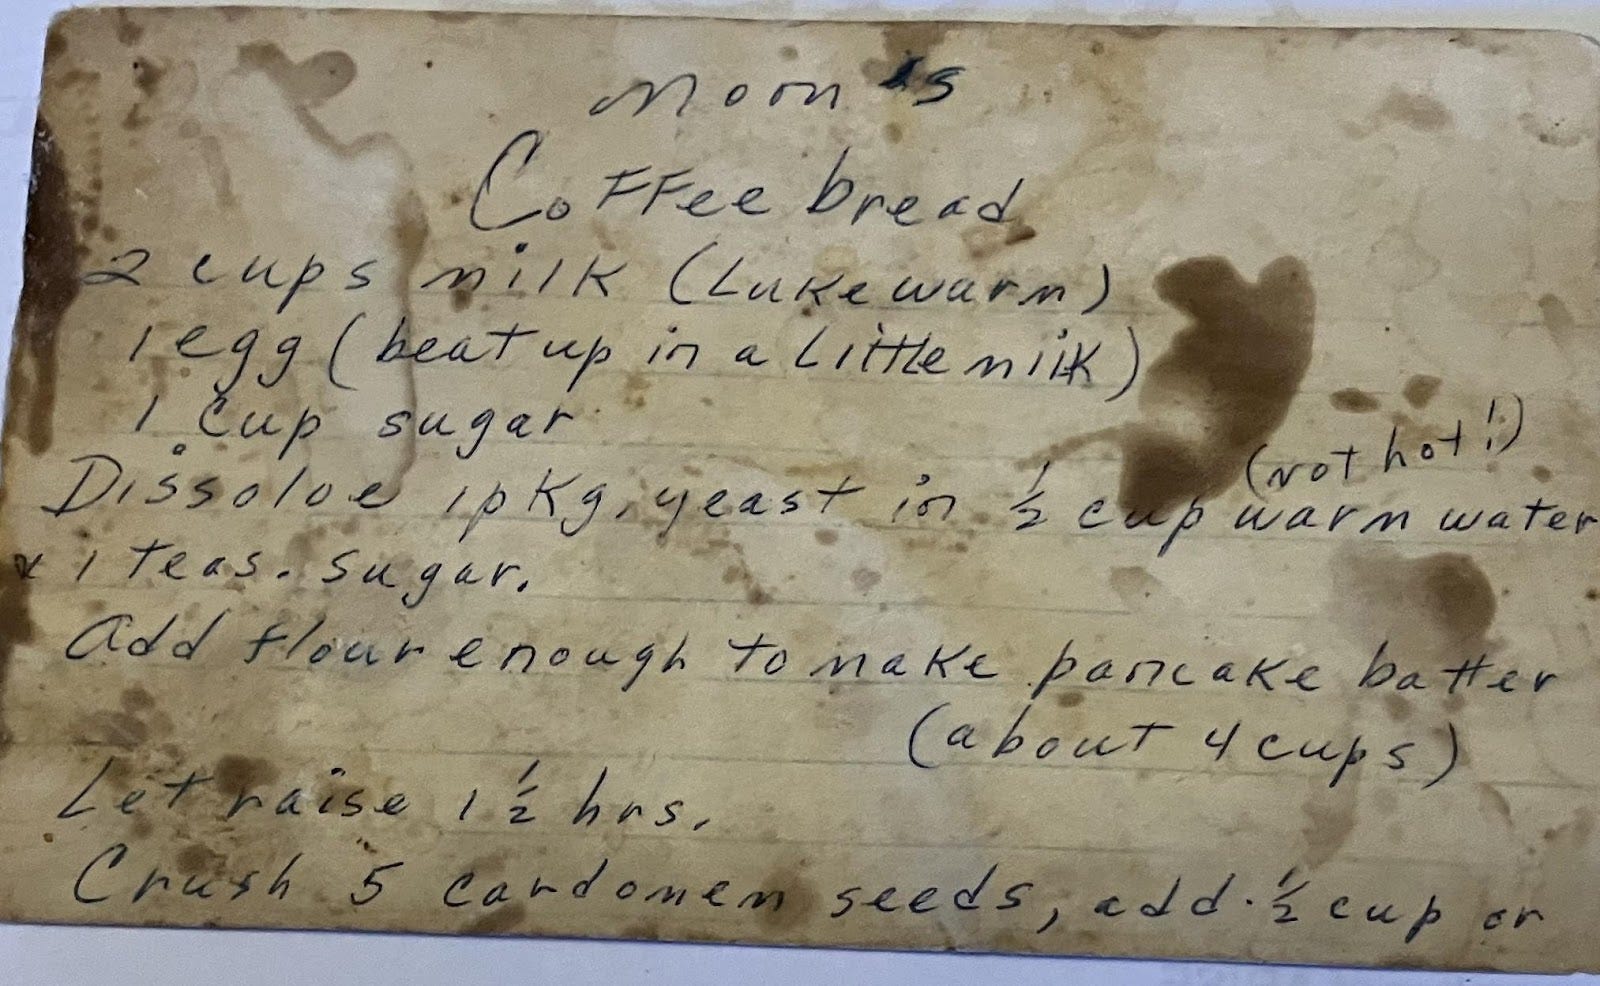 Mom's
Coffee bread
2 cups milk (Lukewarm)
1 egg (beat up in a Little milk)
1 cup sugar
(not hot!)
Dissolve 1 pkg. yeast in ½ cup warm water
& 1 teas. sugar.
Add flour enough to make pancake batter
(about 4 cups)
Let raise 1 ½ hrs.
Crush 5 cardomem seeds, add ½ cup or